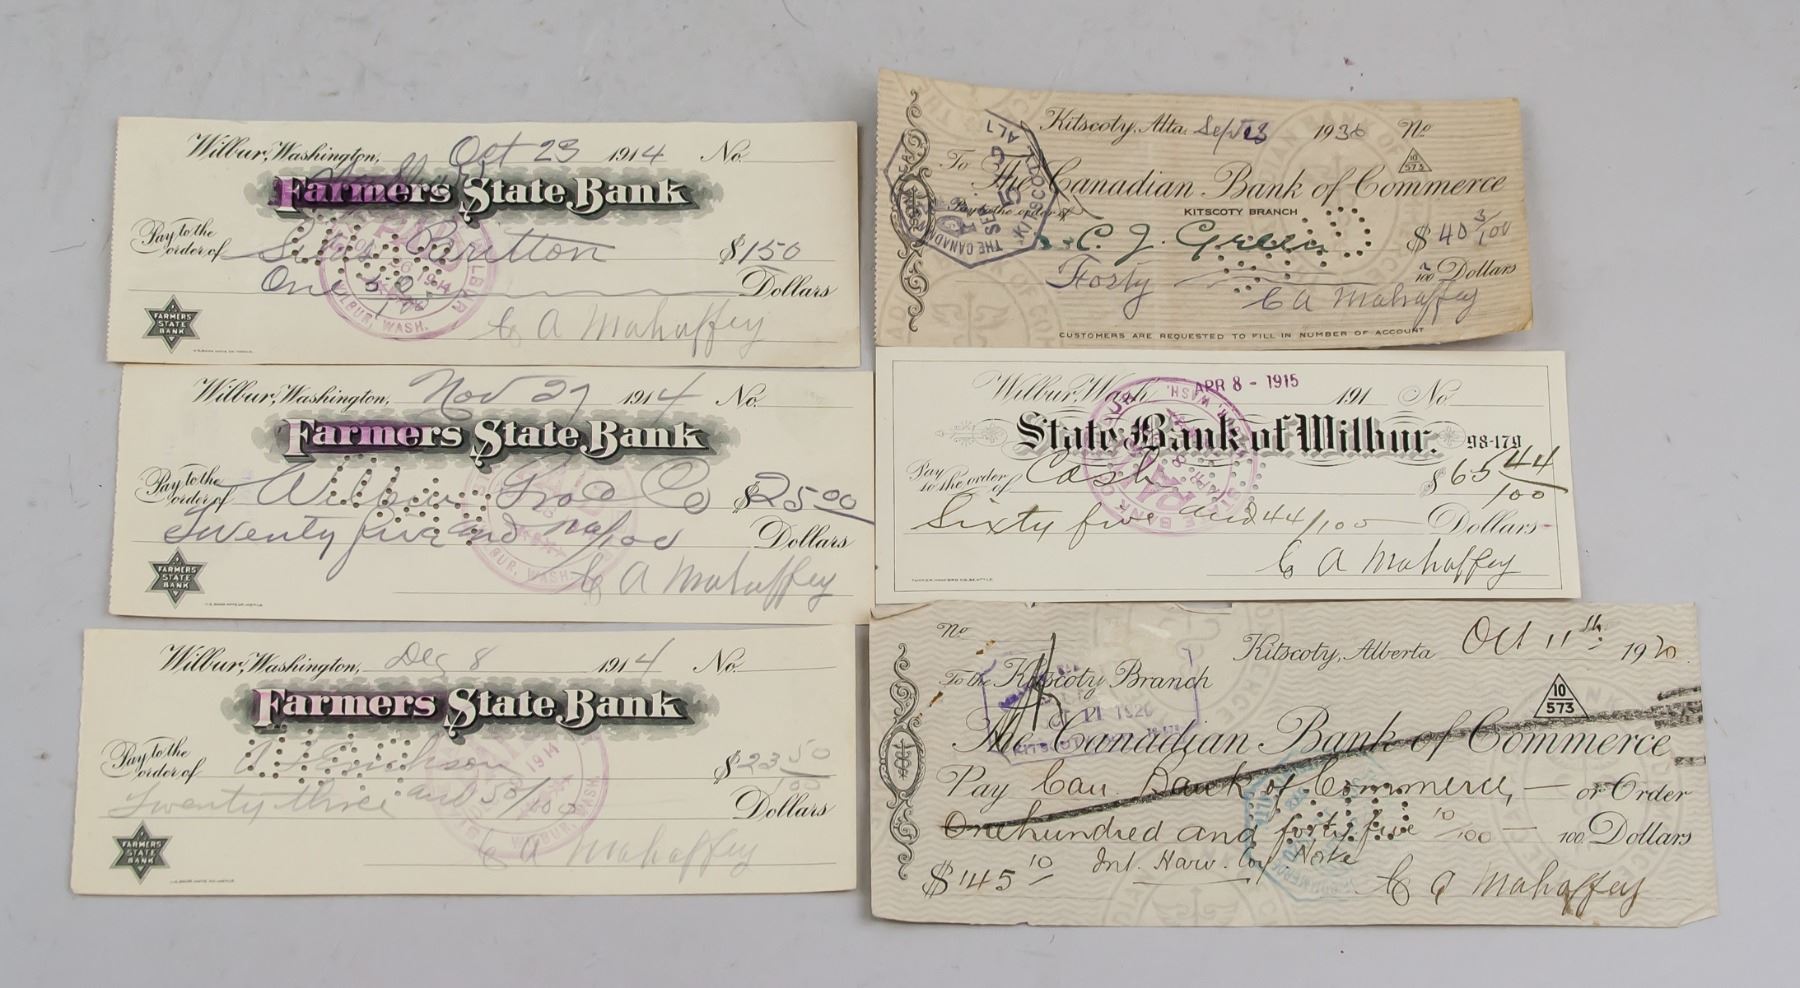 Wilbur, Washington, Oct 23 1914 No.
Farmers State Bank
Pay to the order of Silas Britton $1 50
One 50/100 Dollars
FARMERS STATE BANK
C A Mahaffey
PAID
WILBUR, WASH.
Wilbur, Washington, Nov 27 1914 No.
Farmers State Bank
Pay to the order of Wilbur Co $25 00
Twenty five and no/100 Dollars
FARMERS STATE BANK
C A Mahaffey
Wilbur, Washington, Dec 8 1914 No.
Farmers State Bank
Pay to the order of $23 50/100
Twenty three and 50/100 Dollars
FARMERS STATE BANK
C A Mahaffey
WILBUR, WASH.
Kitscoty, Alta. Sept 1936 No
To The Canadian Bank of Commerce
10 573
KITSCOTY BRANCH
Pay to the order of C. J. Green $40 3/100
Forty 100 Dollars
C A Mahaffey
CUSTOMERS ARE REQUESTED TO FILL IN NUMBER OF ACCOUNT
Wilbur, Wash. APR 8 - 1915 191 No.
State Bank of Wilbur. 98-179
Pay to the order of Cash $65 44/100
Sixty five and 44/100 Dollars
C A Mahaffey
No Kitscoty, Alberta Oct 11th 1920
To the Kitscoty Branch
10 573
The Canadian Bank of Commerce
Pay Can. Bank of Commerce, or Order
One hundred and forty five 10/100 100 Dollars
$145 10 Int. Harv. Coy Note
C A Mahaffey